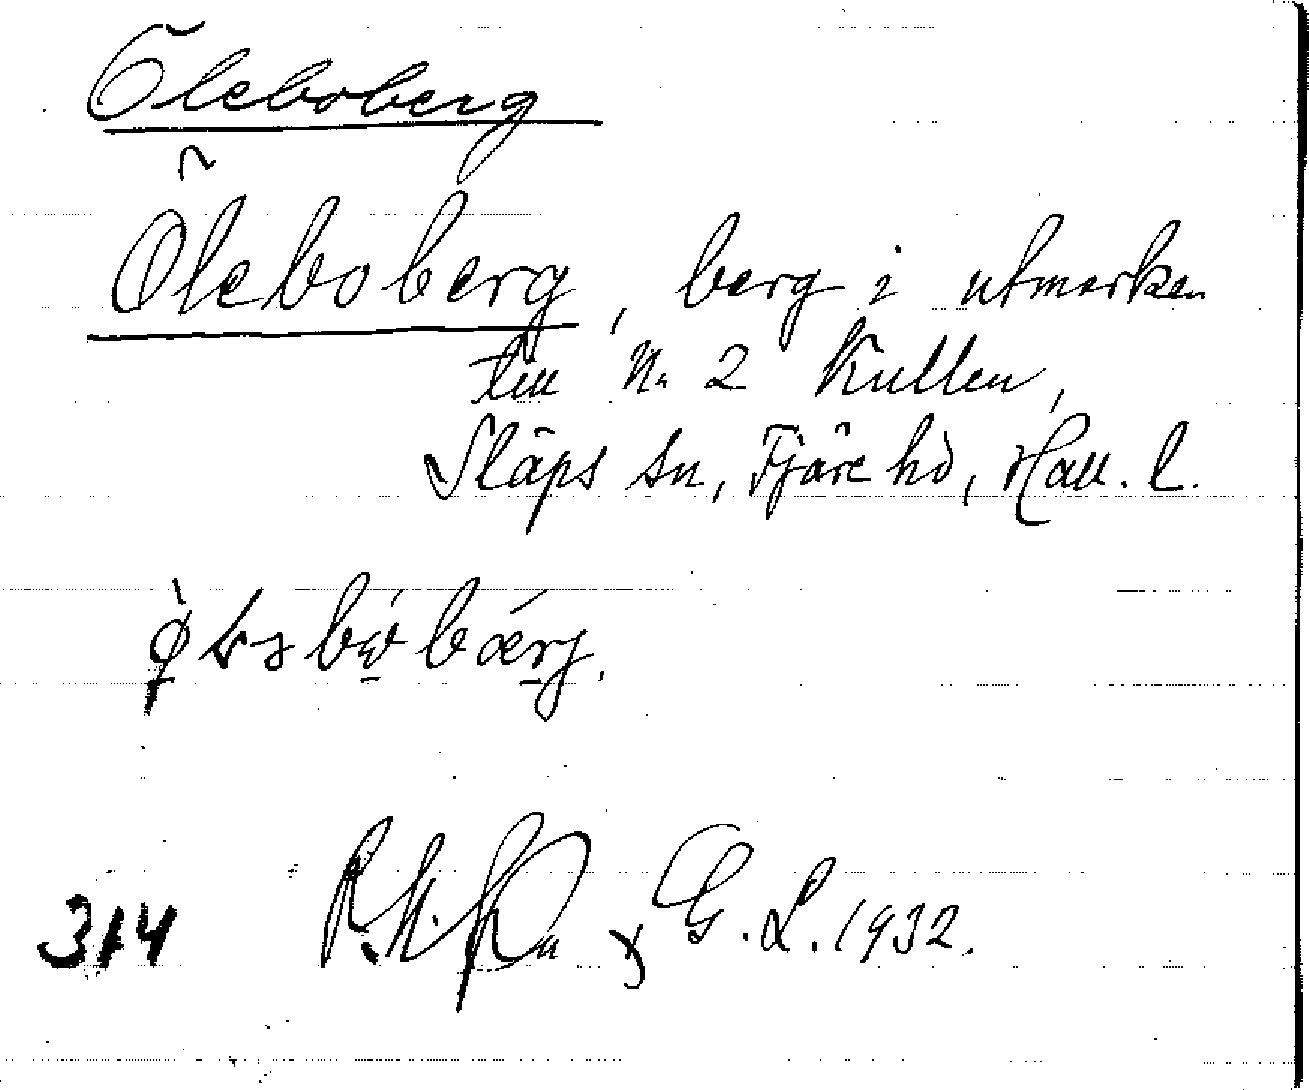 Öleboberg
Öleboberg, berg i utmarken
till Nr 2 Kullen,
Släps sn, Fjäre hd, Hall. l.
G. L. 1932.
314